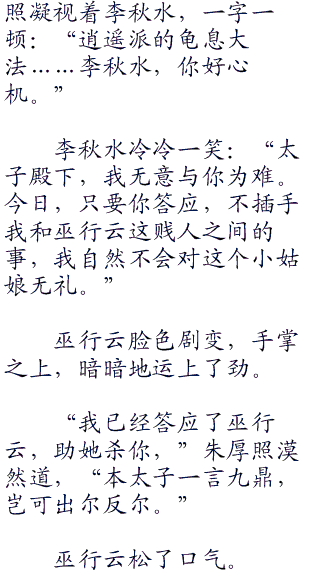 照凝视着李秋水，一字一
顿：“逍遥派的龟息大
法……李秋水，你好心
机。”
李秋水冷冷一笑：“太
子殿下，我无意与你为难。
今日，只要你答应，不插手
我和巫行云这贱人之间的
事，我自然不会对这个小姑
娘无礼。”
巫行云脸色剧变，手掌
之上，暗暗地运上了劲。
“我已经答应了巫行
云，助她杀你，”朱厚照漠
然道，“本太子一言九鼎，
岂可出尔反尔。”
巫行云松了口气。